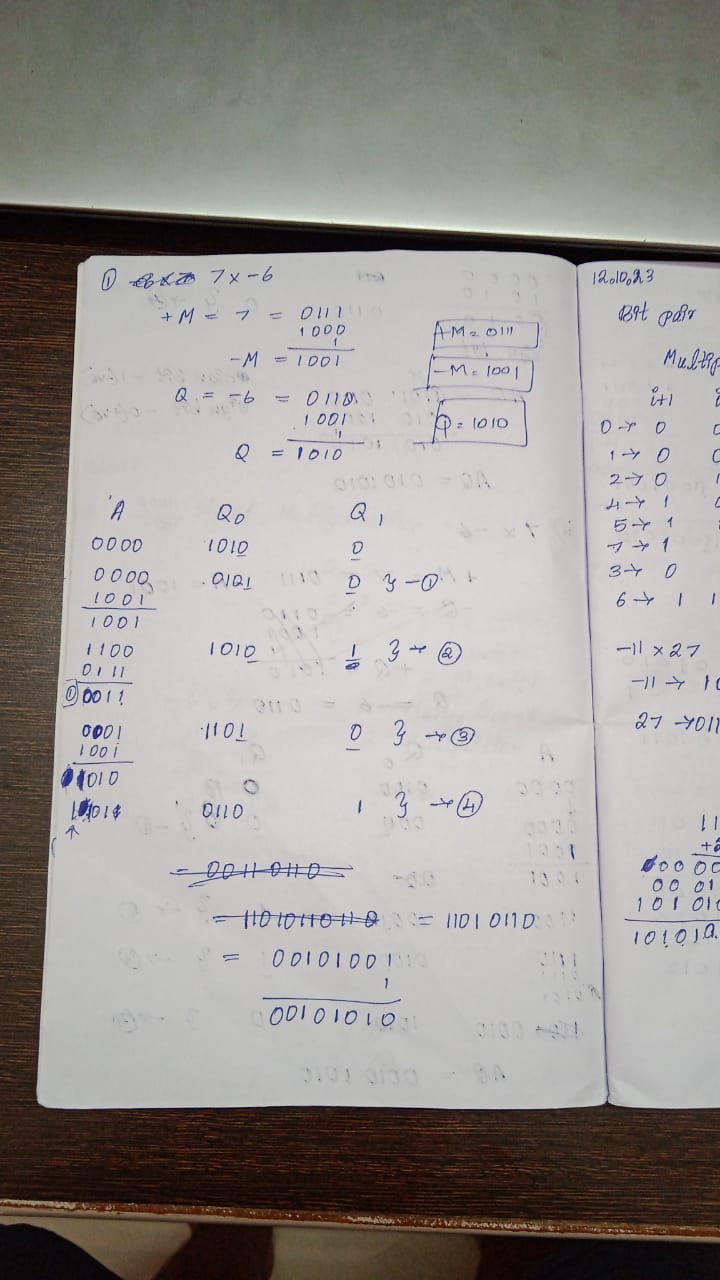 ① 7 x -6
+M = 7 = 0111
1000
1
-M = 1001
+M = 0111
-M = 1001
Q = 1010
Q = -6 = 0110
1001
1
Q = 1010
A Q0 Q1
0000 1010 0
0000 0101 0 } - ①
1001
1001
1100 1010 1 } → ②
0111
① 0011
0001 1101 0 } → ③
1001
1010
1101 0110 1 } → ④
= 00110110
= 11010110110 = 11010110
= 00101001
1
00101010
12.10.23
Bit pair
i+1
0 → 0
1 → 0
2 → 0
4 → 1
5 → 1
7 → 1
3 → 0
6 → 1 1
-11 x 27
-11 →
27 → 011